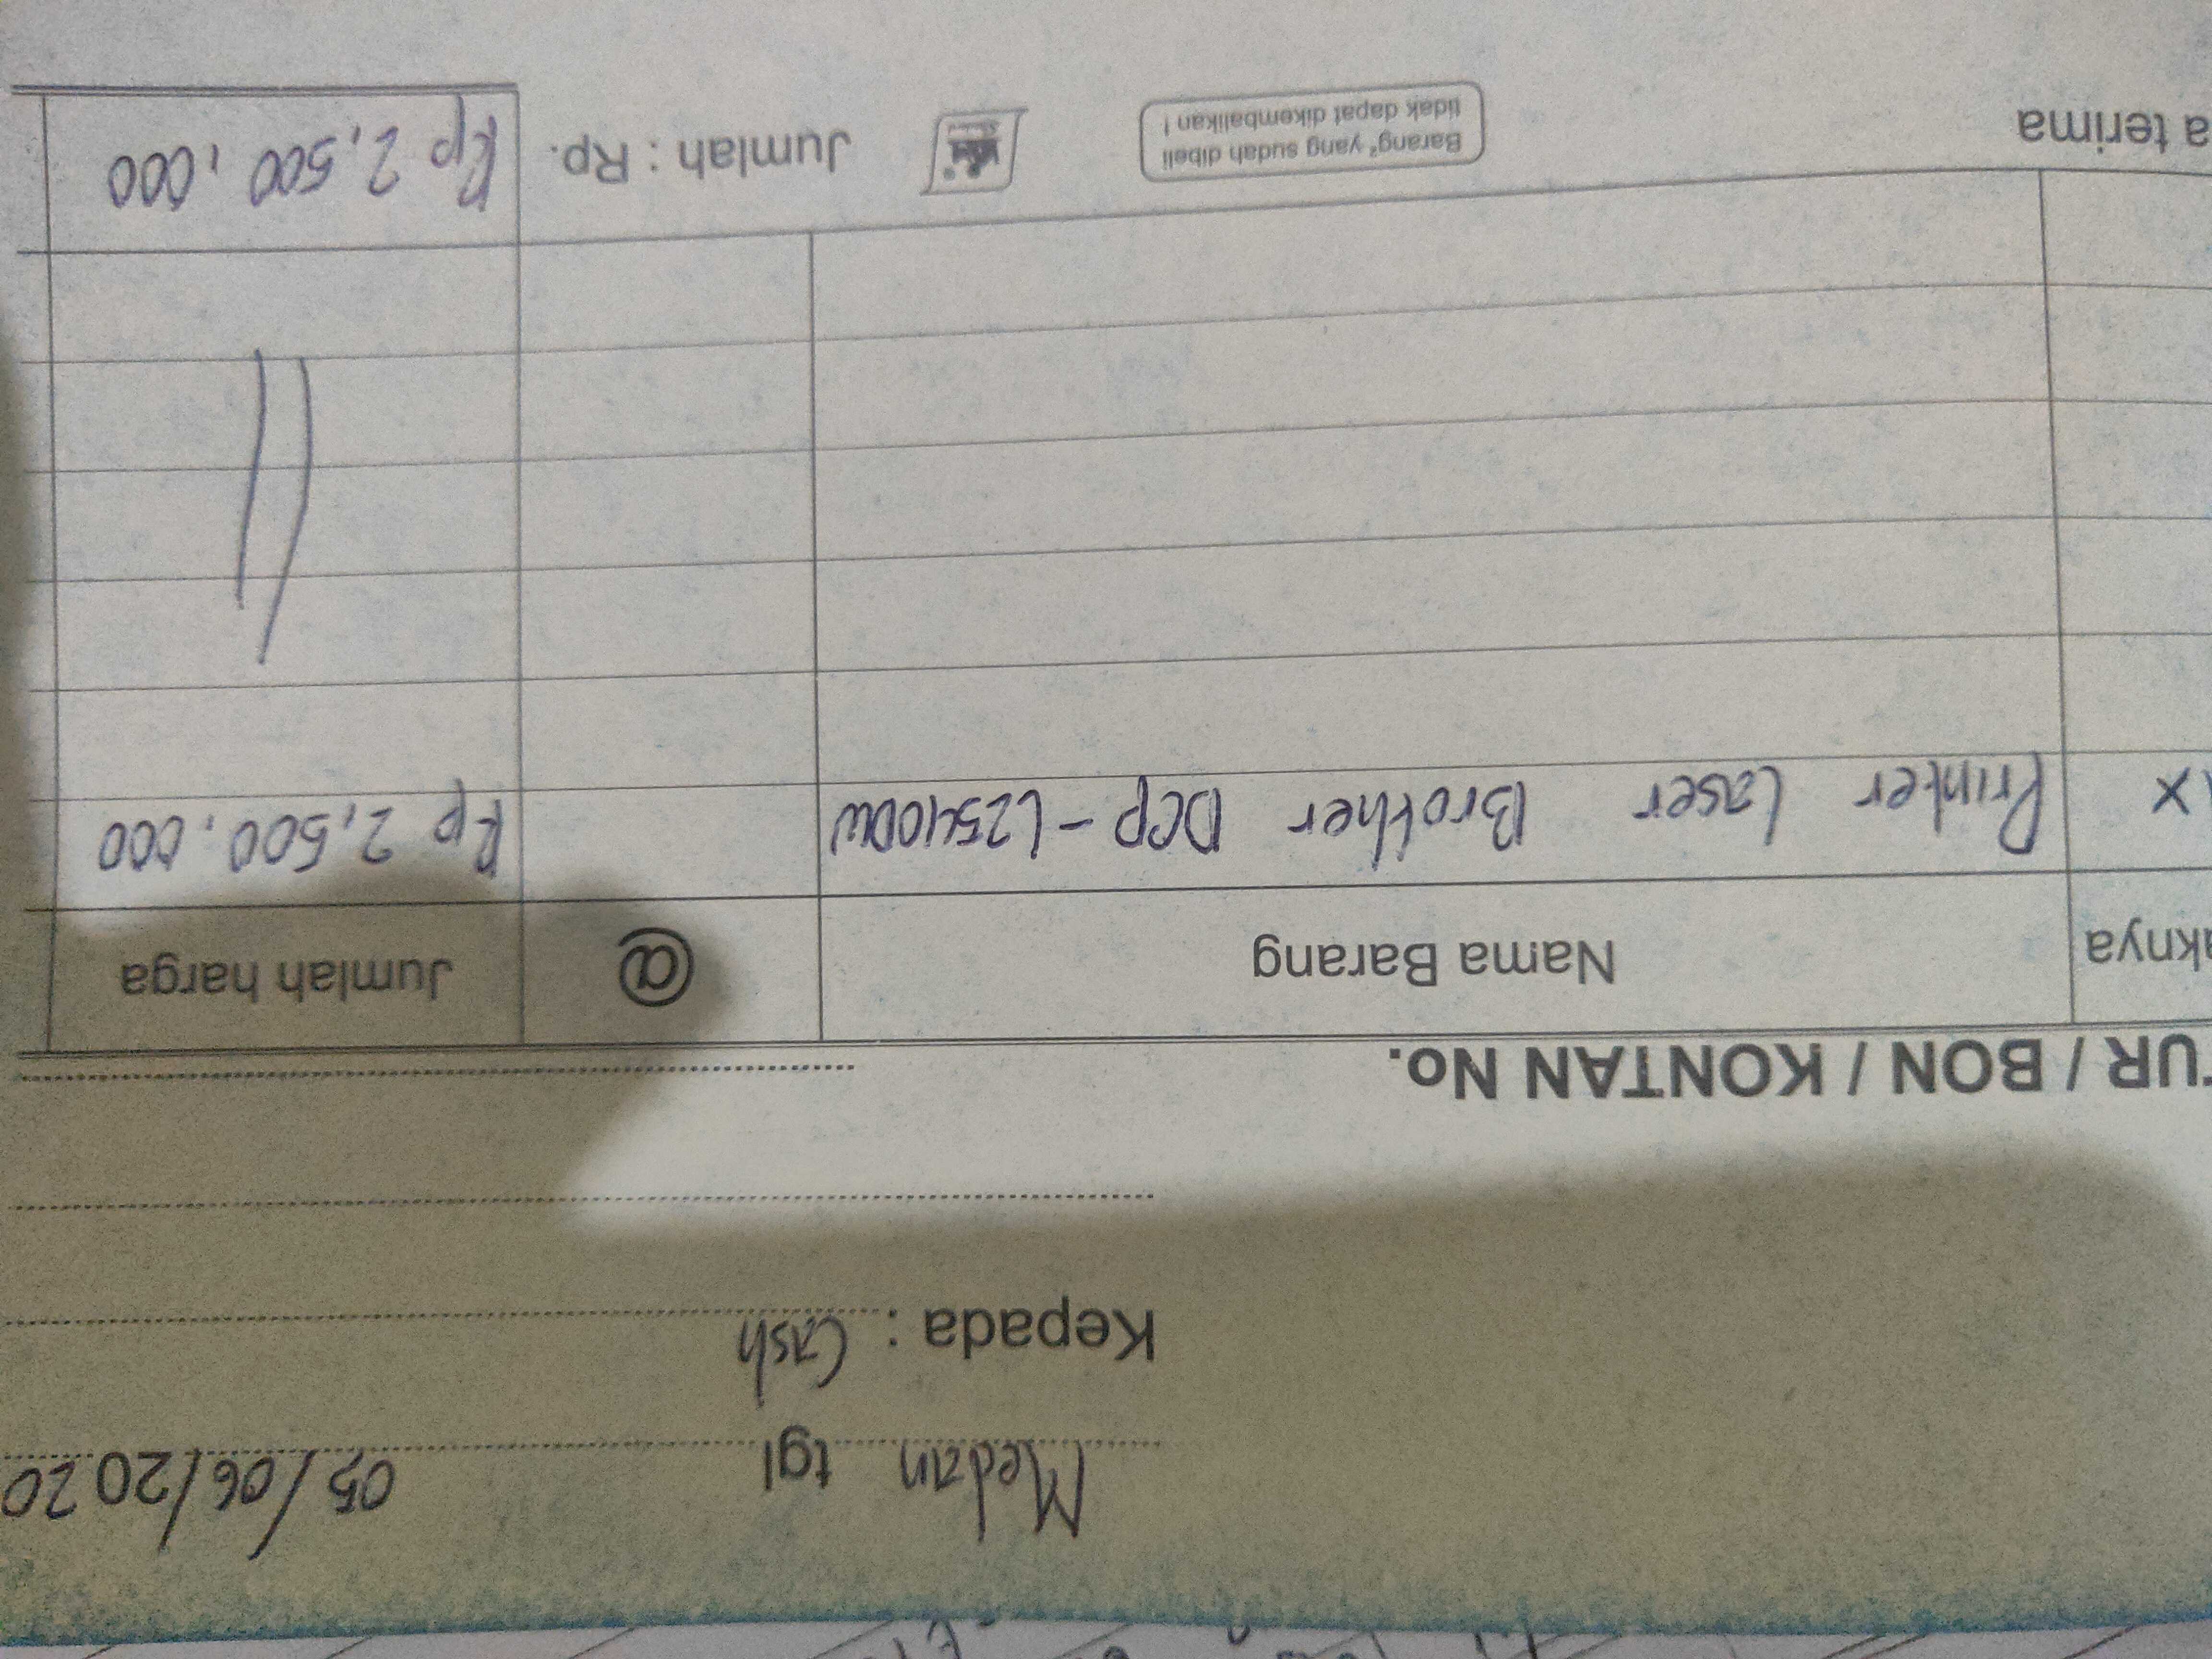 Medan tgl 05/06/2020
Kepada : Cash
TUR / BON / KONTAN No.
aknya Nama Barang @ Jumlah harga
1x Printer Laser Brother DCP-L2540DW Rp 2,500,000
a terima Barang² yang sudah dibeli Jumlah : Rp. Rp 2,500,000
tidak dapat dikembalikan !